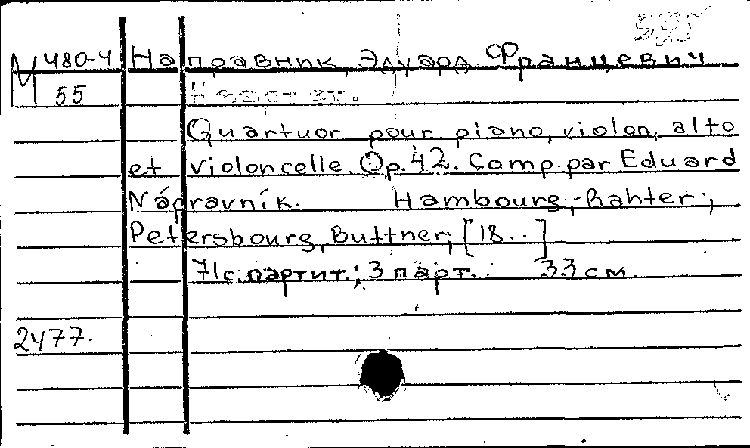 М 480-4 Направник, Эдуард Францевич
55
Quartuor pour piano, violon, alto
et violoncelle. Op. 42. Comp. par Eduard
Nápravník. Hambourg, Rahter;
Petersbourg, Buttner, [18..]
71с. партит.; 3 парт. 33 см.
2477.